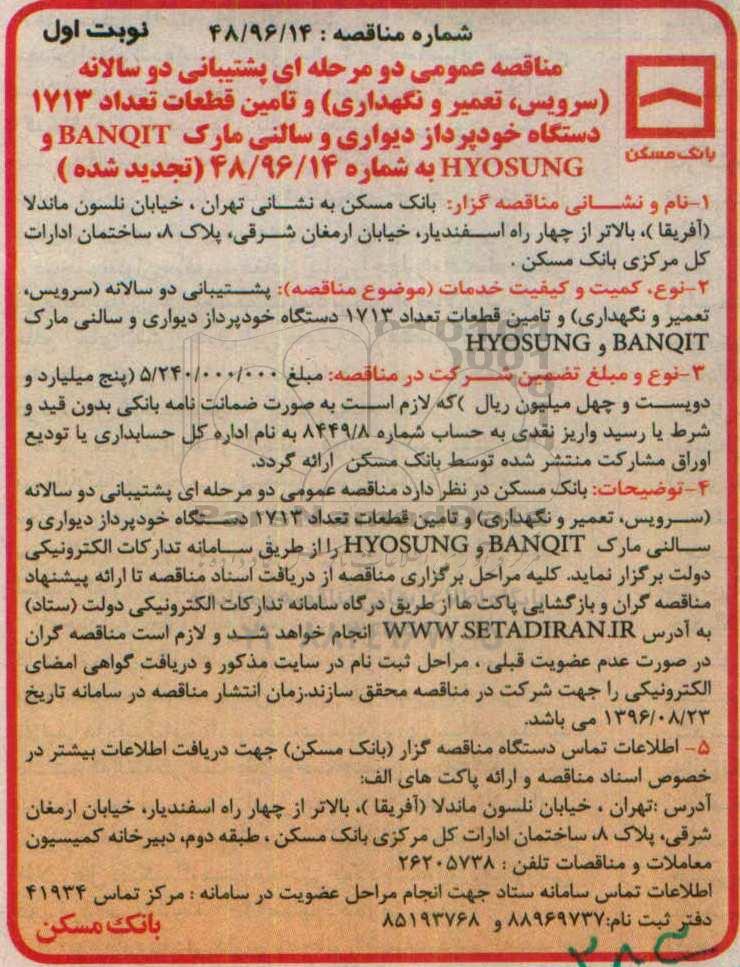 شماره مناقصه : ۴۸/۹۶/۱۴
نوبت اول
مناقصه عمومی دو مرحله ای پشتیبانی دو سالانه
(سرویس، تعمیر و نگهداری) و تامین قطعات تعداد ۱۷۱۳
دستگاه خودپرداز دیواری و سالنی مارک BANQIT و
HYOSUNG به شماره ۴۸/۹۶/۱۴ (تجدید شده )
بانک مسکن
۱-نام و نشانی مناقصه گزار: بانک مسکن به نشانی تهران ، خیابان نلسون ماندلا
(آفریقا )، بالاتر از چهار راه اسفندیار، خیابان ارمغان شرقی، پلاک ۸، ساختمان ادارات
کل مرکزی بانک مسکن .
۲-نوع، کمیت و کیفیت خدمات (موضوع مناقصه): پشتیبانی دو سالانه (سرویس،
تعمیر و نگهداری) و تامین قطعات تعداد ۱۷۱۳ دستگاه خودپرداز دیواری و سالنی مارک
BANQIT و HYOSUNG
۳-نوع و مبلغ تضمین شرکت در مناقصه: مبلغ ۵/۲۴۰/۰۰۰/۰۰۰ (پنج میلیارد و
دویست و چهل میلیون ریال )که لازم است به صورت ضمانت نامه بانکی بدون قید و
شرط یا رسید واریز نقدی به حساب شماره ۸۴۴۹/۸ به نام اداره کل حسابداری یا تودیع
اوراق مشارکت منتشر شده توسط بانک مسکن ارائه گردد.
۴-توضیحات: بانک مسکن در نظر دارد مناقصه عمومی دو مرحله ای پشتیبانی دو سالانه
(سرویس، تعمیر و نگهداری) و تامین قطعات تعداد ۱۷۱۳ دستگاه خودپرداز دیواری و
سالنی مارک BANQIT و HYOSUNG را از طریق سامانه تدارکات الکترونیکی
دولت برگزار نماید. کلیه مراحل برگزاری مناقصه از دریافت اسناد مناقصه تا ارائه پیشنهاد
مناقصه گران و بازگشایی پاکت ها از طریق درگاه سامانه تدارکات الکترونیکی دولت (ستاد)
به آدرس WWW.SETADIRAN.IR انجام خواهد شد و لازم است مناقصه گران
در صورت عدم عضویت قبلی ، مراحل ثبت نام در سایت مذکور و دریافت گواهی امضای
الکترونیکی را جهت شرکت در مناقصه محقق سازند.زمان انتشار مناقصه در سامانه تاریخ
۱۳۹۶/۰۸/۲۳ می باشد.
۵- اطلاعات تماس دستگاه مناقصه گزار (بانک مسکن) جهت دریافت اطلاعات بیشتر در
خصوص اسناد مناقصه و ارائه پاکت های الف:
آدرس :تهران ، خیابان نلسون ماندلا (آفریقا )، بالاتر از چهار راه اسفندیار، خیابان ارمغان
شرقی، پلاک ۸، ساختمان ادارات کل مرکزی بانک مسکن ، طبقه دوم، دبیرخانه کمیسیون
معاملات و مناقصات تلفن : ۲۶۲۰۵۷۳۸
اطلاعات تماس سامانه ستاد جهت انجام مراحل عضویت در سامانه : مرکز تماس ۴۱۹۳۴
دفتر ثبت نام:۸۸۹۶۹۷۳۷ و ۸۵۱۹۳۷۶۸
بانک مسکن